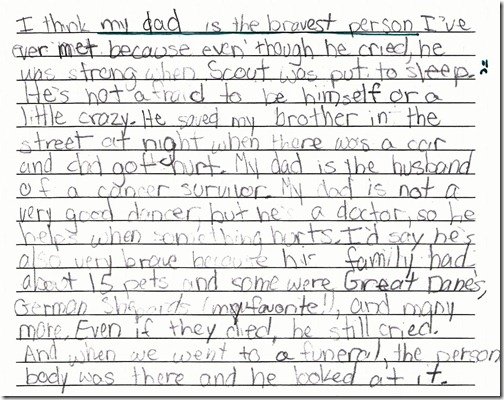 I think my dad is the bravest person I've
ever met because even though he cried, he
was strong when Scout was put to sleep. :(
He's not afraid to be himself or a
little crazy. He saved my brother in the
street at night when there was a car
and dad gott hurt. My dad is the husband
of a cancer survivor. My dad is not a
very good dancer, but he's a doctor, so he
helps when something hurts. I'd say he's
also very brave because his family had
about 15 pets and some were Great Danes,
German Shepards (my favorite!), and many
more. Even if they died, he still cried.
And when we went to a funeral, the person
body was there and he looked at it.